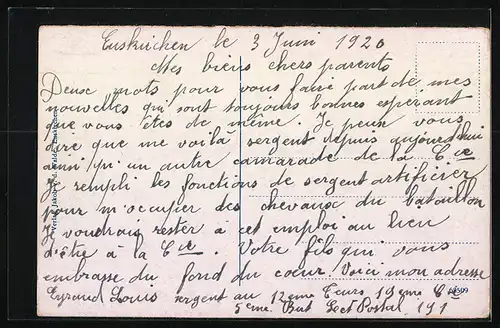 Euskirchen le 3 Juin 1920
Mes biens chers parents
Deux mots pour vous faire part de mes
nouvelles qui sont toujours bonnes espérant
que vous êtes de même. Je peux vous
dire que me voilà sergent depuis aujourd'hui
ainsi qu'un autre camarade de la Cie
Je rempli les fonctions de sergent artificier
pour m'occuper des chevaux du bataillon
Je voudrais rester à cet emploi au lieu
d'être à la Cie. Votre fils qui vous
embrasse du fond du cœur. Voici mon adresse
Eyraud Louis sergent au 12eme 19eme Cie
5eme Bat Sect Postal 191
Verlag Jakob